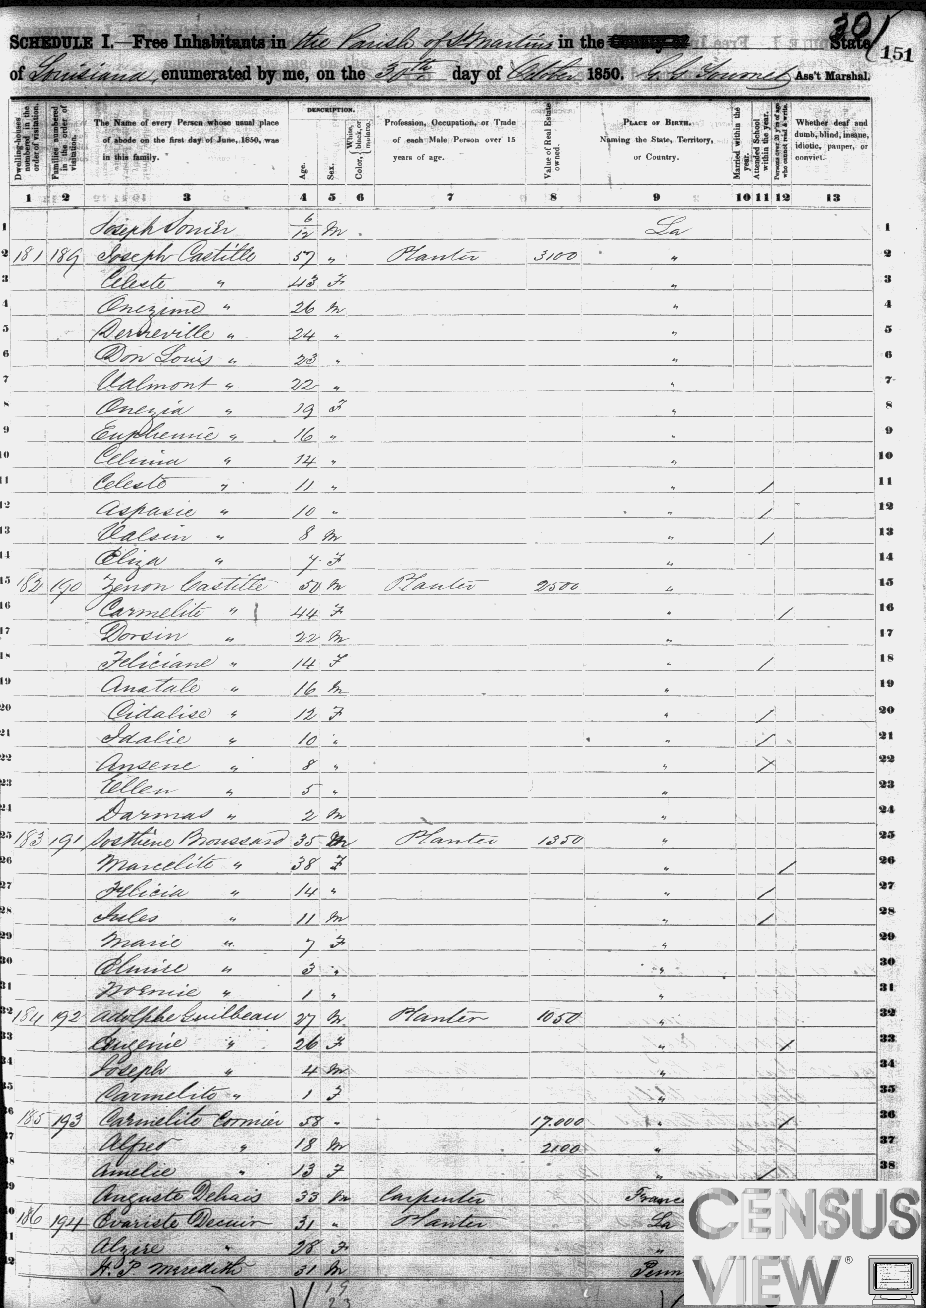 301
151
SCHEDULE I.—Free Inhabitants in the Parish of St Martins in the County of State
of Louisiana, enumerated by me, on the 30th day of October 1850. Ass't Marshal.
Dwelling-houses numbered in the order of visitation.
Families numbered in the order of visitation.
The Name of every Person whose usual place of abode on the first day of June, 1850, was in this family.
DESCRIPTION.
Age.
Sex.
Color, White, black, or mulatto.
Profession, Occupation, or Trade of each Male Person over 15 years of age.
Value of Real Estate owned.
PLACE OF BIRTH. Naming the State, Territory, or Country.
Married within the year.
Attended School within the year.
Persons over 20 y'rs of age who cannot read & write.
Whether deaf and dumb, blind, insane, idiotic, pauper, or convict.
1 2 3 4 5 6 7 8 9 10 11 12 13
1 Joseph 6/12 M La 1
2 181 189 Joseph Castille 57 " Planter 3100 " 2
3 Celeste " 43 F " 3
4 Onezime " 26 M " 4
5 Derneville " 24 " " 5
6 Don Louis " 23 " " 6
7 Valmont " 22 " " 7
8 Onezia " 19 F " 8
9 Euphemie " 16 " " 9
10 Celima " 14 " " 10
11 Celeste " 11 " " / 11
12 Aspasie " 10 " " / 12
13 Valsin " 8 M " / 13
14 Eliza " 7 F " 14
15 182 190 Zenon Castille 50 M Planter 2500 " 15
16 Carmelite " 44 F " / 16
17 Dorsin " 22 M " 17
18 Feliciane " 14 F " / 18
19 Anatale " 16 M " 19
20 Cidalise " 12 F " / 20
21 Idalie " 10 " " / 21
22 Arsene " 8 " " / 22
23 Ellen " 5 " " 23
24 Darmas " 2 M " 24
25 183 191 Sosthène Broussard 35 M Planter 1350 " 25
26 Marcelite " 38 F " / 26
27 Felicia " 14 " " / 27
28 Jules " 11 M " / 28
29 Marie " 7 F " 29
30 Elmire " 3 " " 30
31 Noemie " 1 " " 31
32 184 192 Adolphe Guilbeau 27 M Planter 1050 " 32
33 Eugenie " 26 F " / 33
34 Joseph " 4 M " 34
35 Carmelite " 1 F " 35
36 185 193 Carmelite Cormier 58 " 17.000 " / 36
37 Alfred " 18 M 2100 " 37
38 Amelie " 13 F " / 38
39 Auguste Dehais 33 M Carpenter France
40 186 194 Evariste Decuir 31 " Planter La
41 Alzire " 28 F "
42 H. P. Meredith 31 M Penn
CENSUS
VIEW®